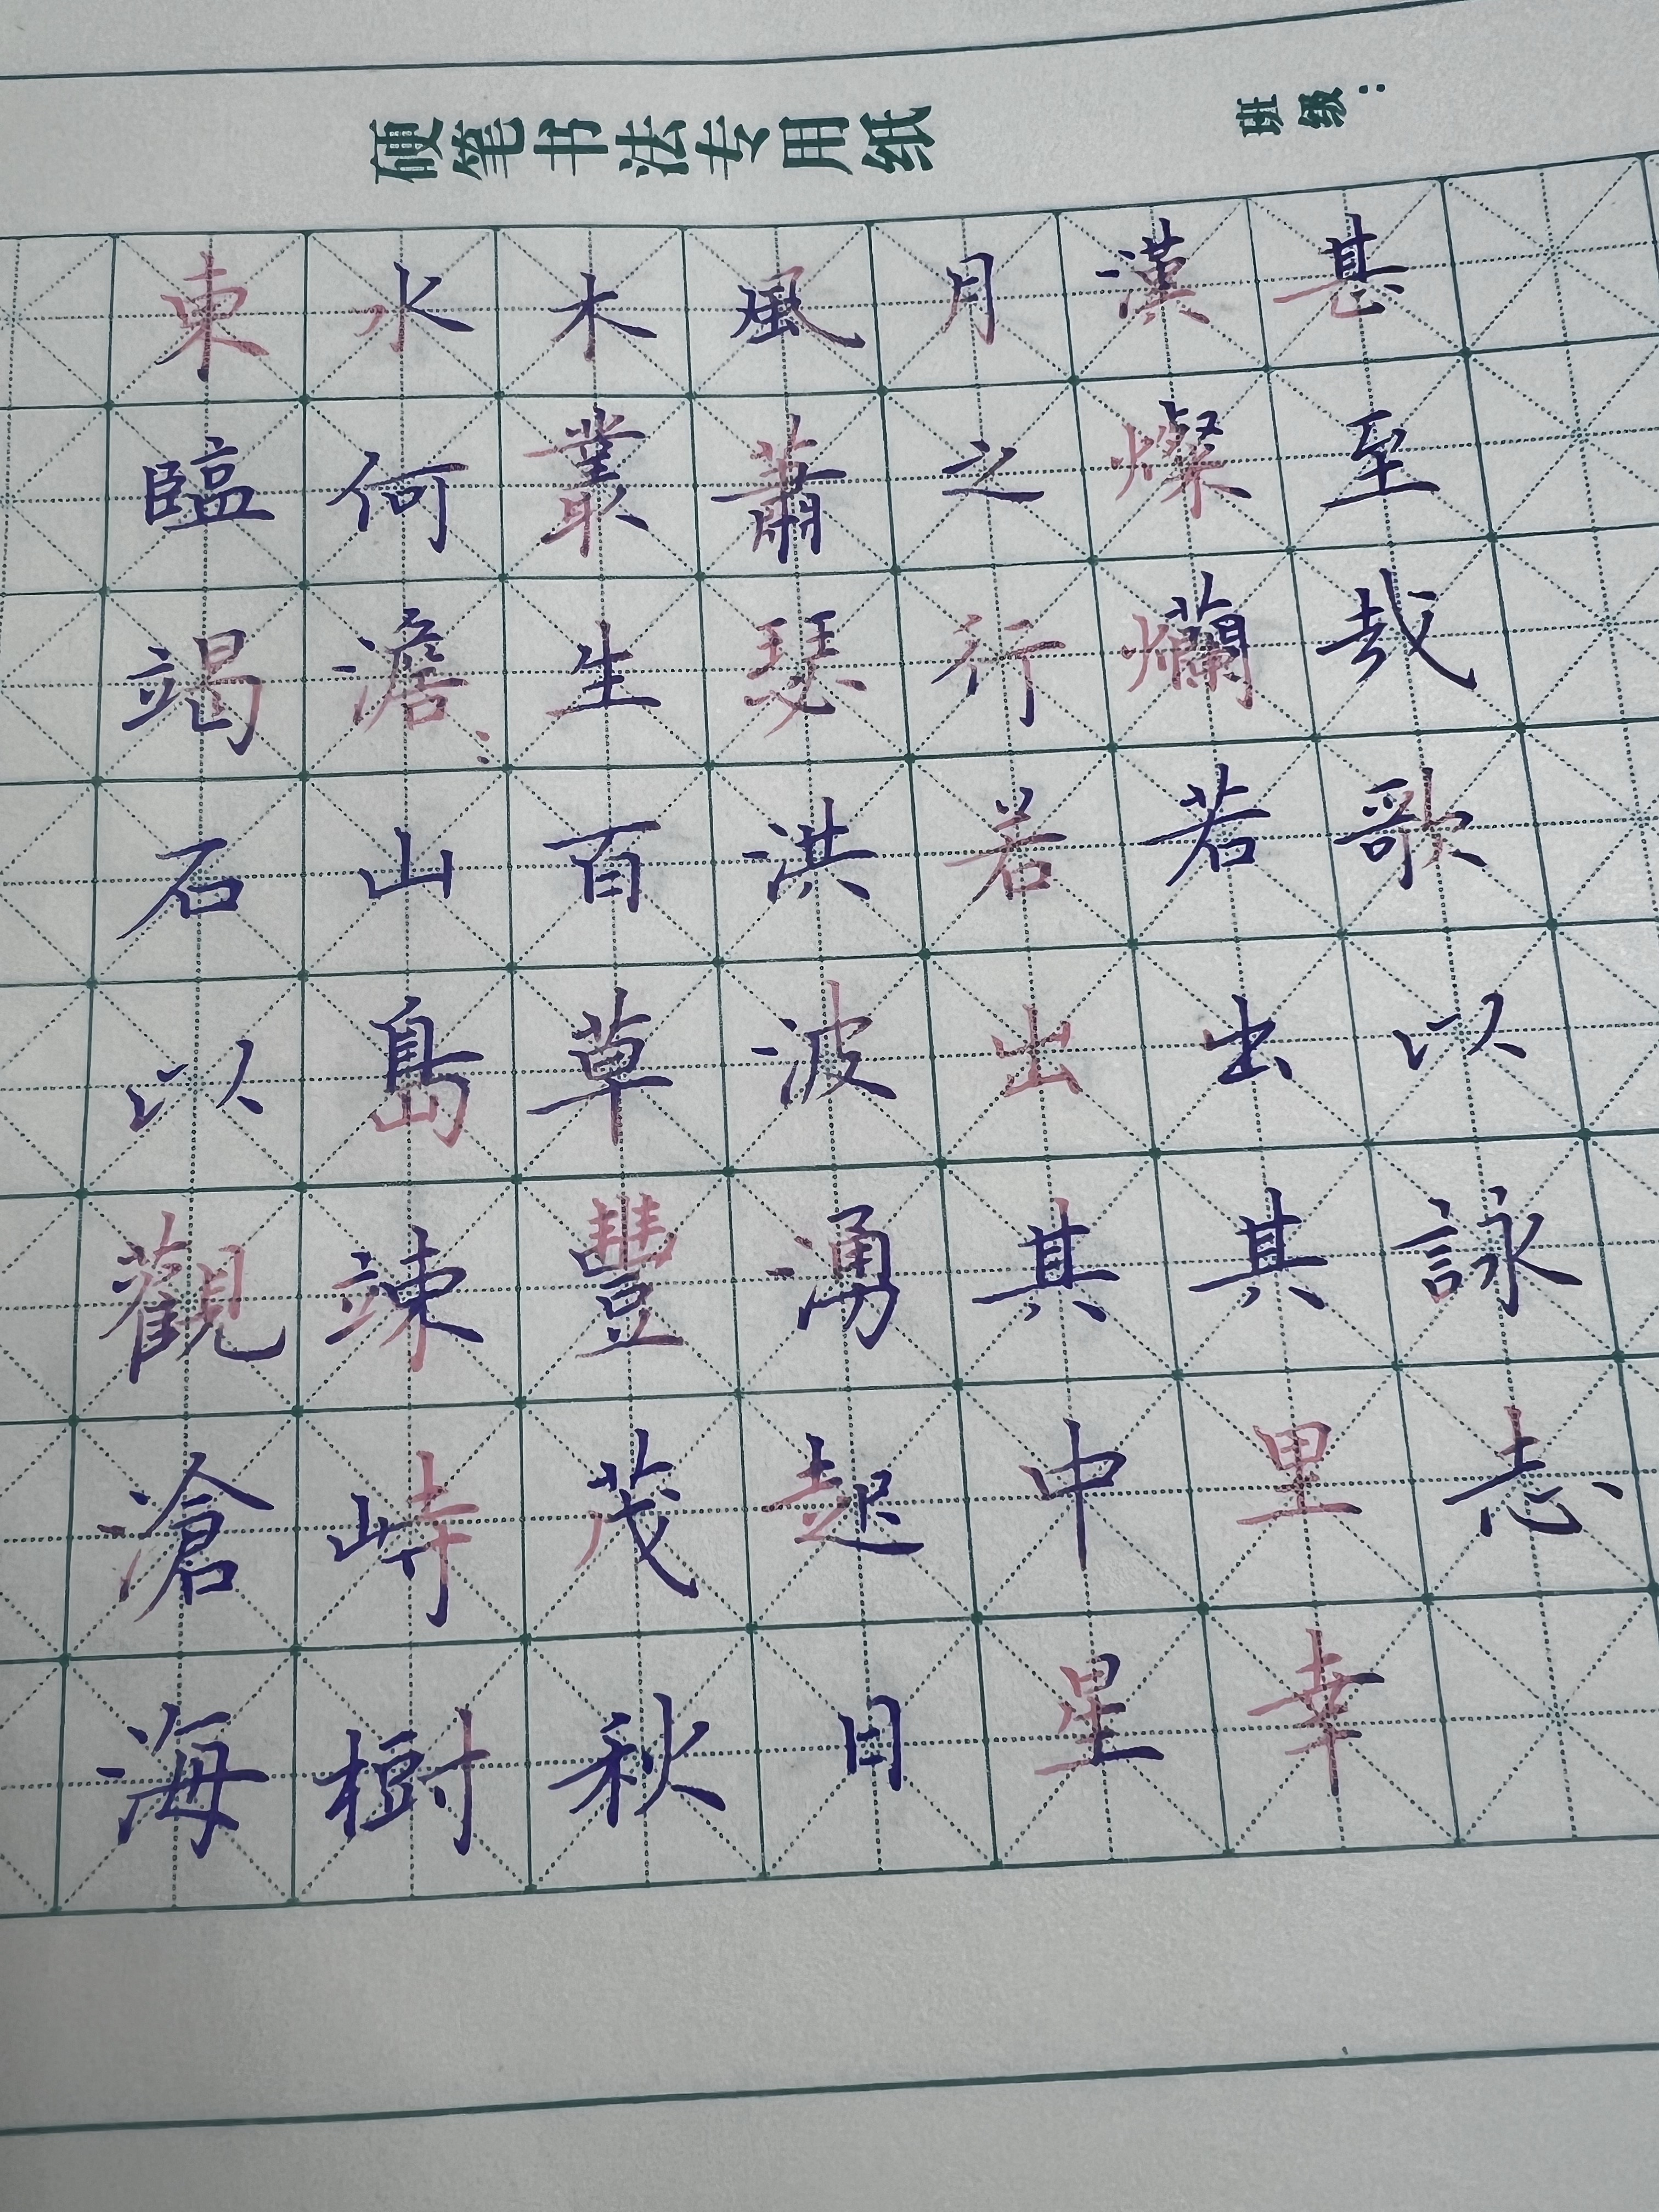 硬笔书法专用纸
班级：
東臨竭石以觀滄海
水何澹：山島竦峙樹
木叢生百草豐茂秋
風蕭瑟洪波湧起日
月之行若出其中星
漢燦爛若出其里幸
甚至哉歌以詠志